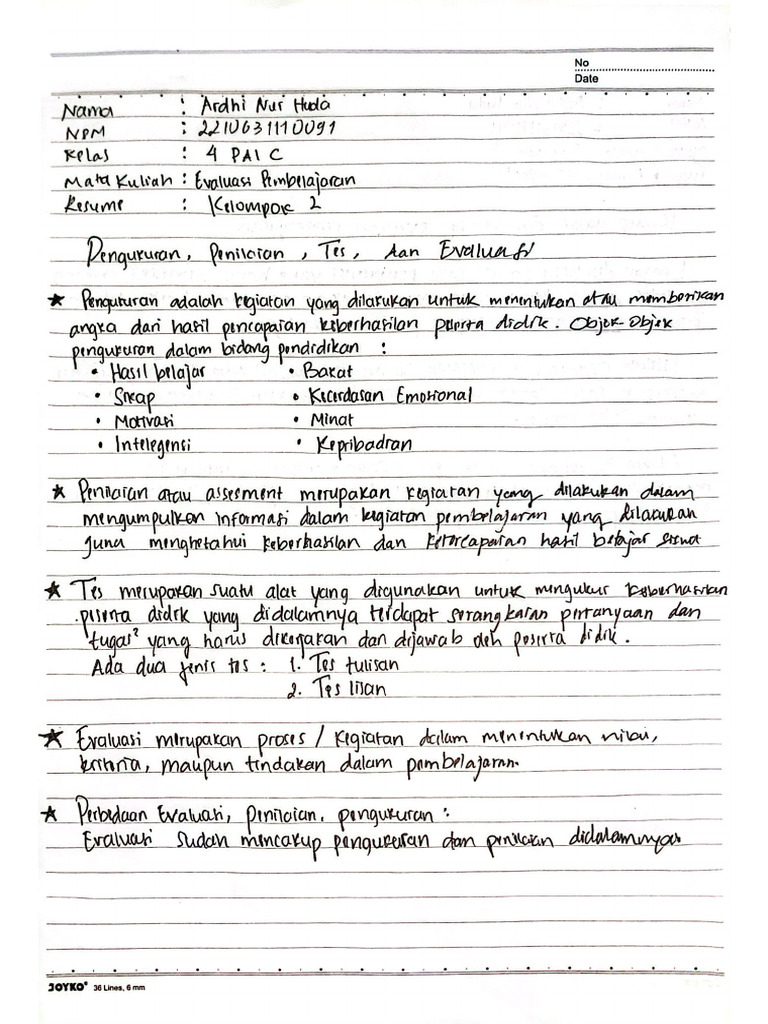 No
Date
Nama : Ardhi Nur Huda
NPM : 2210631110091
Kelas : 4 PAI C
Mata Kuliah : Evaluasi Pembelajaran
Resume : Kelompok 2
Pengukuran, Penilaian, Tes, dan Evaluasi
★ Pengukuran adalah kegiatan yang dilakukan untuk menentukan atau memberikan
angka dari hasil pencapaian keberhasilan peserta didik. Objek-Objek
pengukuran dalam bidang pendidikan :
• Hasil belajar • Bakat
• Sikap • Kecerdasan Emosional
• Motivasi • Minat
• Intelegensi • Kepribadian
★ Penilaian atau assesment merupakan kegiatan yang dilakukan dalam
mengumpulkan informasi dalam kegiatan pembelajaran yang dilakukan
guna menghetahui keberhasilan dan ketercapaian hasil belajar siswa
★ Tes merupakan suatu alat yang digunakan untuk mengukur keberhasilan
peserta didik yang didalamnya terdapat serangkaian pertanyaan dan
tugas² yang harus dikerjakan dan dijawab oleh peserta didik.
Ada dua jenis tes : 1. Tes tulisan
2. Tes lisan
★ Evaluasi merupakan proses / kegiatan dalam menentukan nilai,
kriteria, maupun tindakan dalam pembelajaran.
★ Perbedaan Evaluasi, penilaian, pengukuran :
Evaluasi sudah mencakup pengukuran dan penilaian didalamnya
JOYKO® 36 Lines, 6 mm